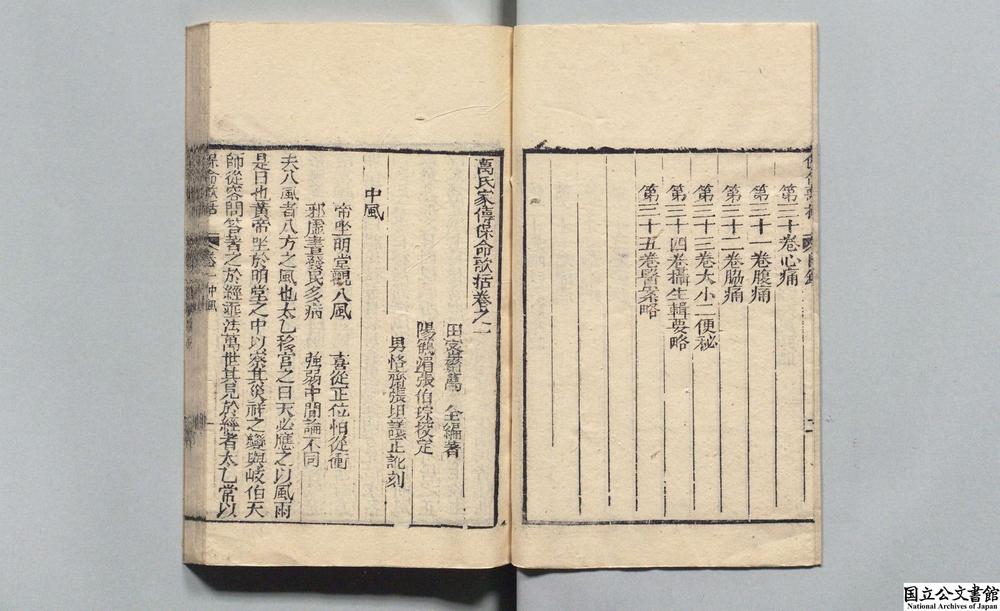 第三十卷心痛
第三十一卷腹痛
第三十二卷脇痛
第三十三卷大小二便秘
第三十四卷攝生輯要略
第三十五卷醫案略
萬氏家傳保命歌括卷之一
田家 萬 全編著
陽鶴湄張伯琮校定
男 張坦議正訛刻
中風
帝坐明堂觀八風 喜從正位怕從衝
邪虛晝發民多病 強弱中間論不同
夫八風者八方之風也太乙移宮之日天必應之以風雨
是日也黃帝坐於明堂之中以察其災祥之變與岐伯天
師從容問答著之於經垂法萬世其見於經者太乙常以
保命歌括 卷一 中風 一
国立公文書館
National Archives of Japan